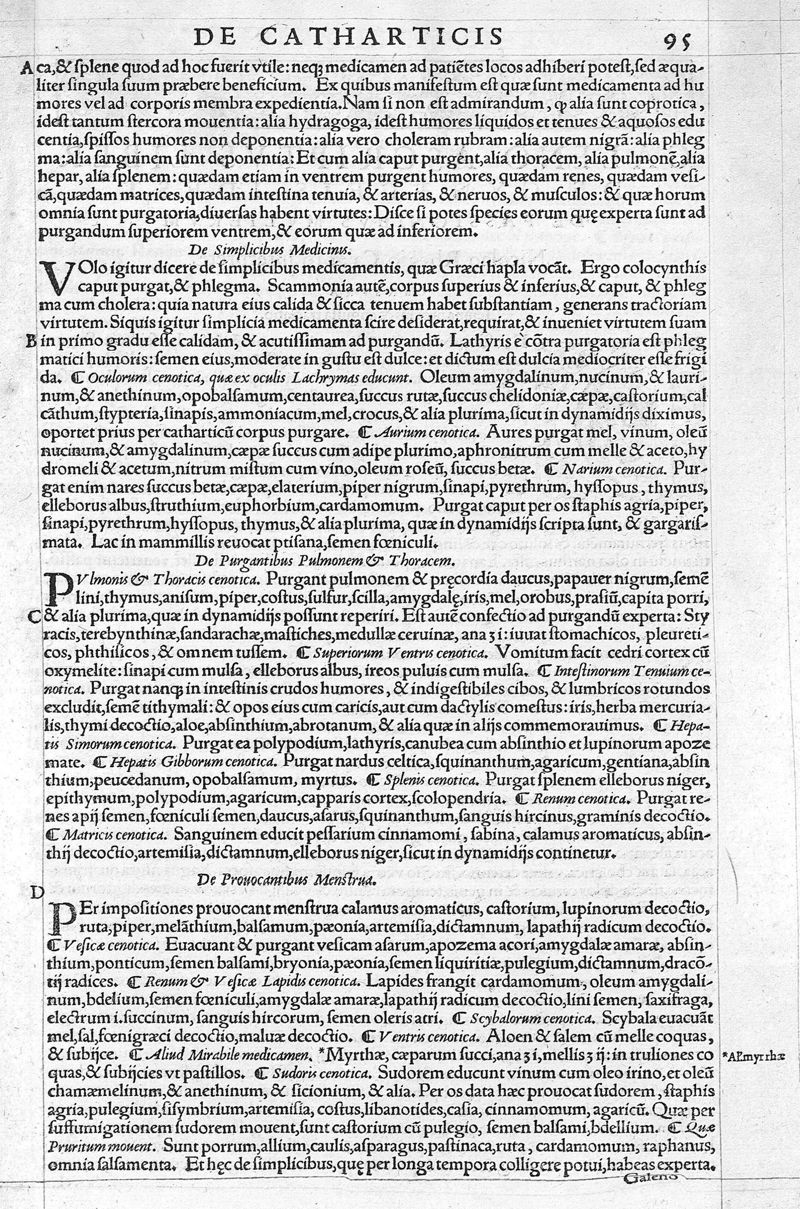 DE CATHARTICIS 95
A ca,& ſplene quod ad hoc fuerit vtile: neq; medicamen ad patiētes locos adhiberi poteſt,ſed æqua-
liter singula ſuum præbere beneficium. Ex quibus manifeſtum eſt quæ ſunt medicamenta ad hu
mores vel ad corporis membra expedientia. Nam ſi non eſt admirandum, ꝙ alia ſunt coprotica,
ideſt tantum ſtercora mouentia: alia hydragoga, ideſt humores liquidos et tenues & aquoſos edu
centia,ſpiſſos humores non deponentia: alia vero choleram rubram: alia autem nigrā: alia phleg
ma: alia ſanguinem ſunt deponentia: Et cum alia caput purgent,alia thoracem, alia pulmonē,alia
hepar, alia ſplenem: quædam etiam in ventrem purgent humores, quædam renes, quædam veſi-
cā,quædam matrices, quædam inteſtina tenuia, & arterias, & neruos, & muſculos: & quæ horum
omnia ſunt purgatoria,diuerſas habent virtutes: Diſce ſi potes ſpecies eorum quę experta ſunt ad
purgandum ſuperiorem ventrem,& eorum quæ ad inferiorem.
De Simplicibus Medicinus.
VOlo igitur dicere de ſimplicibus medicamentis, quæ Græci hapla vocāt. Ergo colocynthis
caput purgat,& phlegma. Scammonia autē,corpus ſuperius & inferius,& caput, & phleg
ma cum cholera: quia natura eius calida & ſicca tenuem habet ſubſtantiam, generans tractoriam
virtutem. Siquis igitur ſimplicia medicamenta ſcire deſiderat,requirat,& inueniet virtutem ſuam
B in primo gradu eſſe calidam, & acutiſſimam ad purgandū. Lathyris ē cōtra purgatoria eſt phleg
matici humoris: ſemen eius,moderate in guſtu eſt dulce: et dictum eſt dulcia mediocriter eſſe frigi
da. ☾ Oculorum cenotica, quæ ex oculis Lachrymas educunt. Oleum amygdalinum,nucinum,& lauri-
num,& anethinum, opobalſamum, centaurea,ſuccus rutæ,ſuccus chelidoniæ,cæpæ,caſtorium,cal
cāthum,ſtypteria,ſinapis,ammoniacum,mel,crocus,& alia plurima,ſicut in dynamidijs diximus,
oportet prius per catharticū corpus purgare. ☾ Aurium cenotica. Aures purgat mel, vinum, oleū
nucinum,& amygdalinum,cæpæ ſuccus cum adipe plurimo,aphronitrum cum melle & aceto,hy
dromeli & acetum,nitrum miſtum cum vino,oleum roſeū, ſuccus betæ. ☾ Narium cenotica. Pur-
gat enim nares ſuccus betæ,cæpæ,elaterium,piper nigrum,ſinapi,pyrethrum, hyſſopus, thymus,
elleborus albus,ſtruthium,euphorbium,cardamomum. Purgat caput per os ſtaphis agria,piper,
ſinapi,pyrethrum,hyſſopus, thymus,& alia plurima, quæ in dynamidijs ſcripta ſunt, & gargariſ-
mata. Lac in mammillis reuocat ptiſana,ſemen fœniculi.
De Purgantibus Pulmonem & Thoracem.
PVlmonis & Thoracis cenotica. Purgant pulmonem & pręcordia daucus,papauer nigrum,ſemē
lini,thymus,aniſum,piper,coſtus,ſulfur,ſcilla,amygdalę,iris,mel,orobus,praſiū,capita porri,
C & alia plurima,quæ in dynamidijs poſſunt reperiri. Eſt autē confectio ad purgandū experta: Sty
racis,terebynthinæ,ſandarachæ,maſtiches,medullæ ceruinæ, ana ʒ i: iuuat ſtomachicos, pleureti-
cos, phthiſicos, & omnem tuſſem. ☾ Superiorum Ventris cenotica. Vomitum facit cedri cortex cū
oxymelite: ſinapi cum mulſa, elleborus albus, ireos puluis cum mulſa. ☾ Inteſtinorum Tenuium ce-
notica. Purgat nanq; in inteſtinis crudos humores, & indigeſtibiles cibos, & lumbricos rotundos
excludit,ſemē tithymali: & opos eius cum caricis,aut cum dactylis comeſtus: iris,herba mercuria-
lis,thymi decoctio,aloe,abſinthium,abrotanum, & alia quæ in alijs commemorauimus. ☾ Hepa-
tis Simorum cenotica. Purgat ea polypodium,lathyris,canubea cum abſinthio et lupinorum apoze
mate. ☾ Hepatis Gibborum cenotica. Purgat nardus celtica,ſquinanthum,agaricum,gentiana,abſin
thium,peucedanum, opobalſamum, myrtus. ☾ Splenis cenotica. Purgat ſplenem elleborus niger,
epithymum,polypodium,agaricum,capparis cortex,ſcolopendria. ☾ Renum cenotica. Purgat re-
nes apij ſemen,fœniculi ſemen,daucus,aſarus,ſquinanthum,ſanguis hircinus,graminis decoctio.
☾ Matricis cenotica. Sanguinem educit peſſarium cinnamomi, ſabina, calamus aromaticus, abſin-
thij decoctio,artemiſia,dictamnum,elleborus niger,ſicut in dynamidijs continetur.
De Prouocantibus Menſtrua.
D
PEr impoſitiones prouocant menſtrua calamus aromaticus, caſtorium, lupinorum decoctio,
ruta,piper,melāthium,balſamum,pæonia,artemiſia,dictamnum, lapathij radicum decoctio.
☾ Veſicæ cenotica. Euacuant & purgant veſicam aſarum,apozema acori,amygdalæ amaræ, abſin-
thium,ponticum,ſemen balſami,bryonia,pæonia,ſemen liquiritiæ,pulegium,dictamnum,dracō-
tij radices. ☾ Renum & Veſicæ Lapidis cenotica. Lapides frangit cardamomum, oleum amygdali-
num,bdelium,ſemen fœniculi,amygdalæ amaræ,lapathij radicum decoctio,lini ſemen, ſaxifraga,
electrum i.ſuccinum, ſanguis hircorum, ſemen oleris atri. ☾ Scybalorum cenotica. Scybala euacuāt
mel,ſal,fœnigræci decoctio,maluæ decoctio. ☾ Ventris cenotica. Aloen & ſalem cū melle coquas,
& ſubijce. ☾ Aliud Mirabile medicamen. *Myrthæ, cæparum ſucci,ana ʒ i,mellis ʒ ij: in truliones co
*Al. myrrhæ
quas,& ſubijcies vt paſtillos. ☾ Sudoris cenotica. Sudorem educunt vinum cum oleo irino,et oleū
chamæmelinum,& anethinum, & ſicionium, & alia. Per os data hæc prouocat ſudorem, ſtaphis
agria,pulegium,ſiſymbrium,artemiſia, coſtus,libanotides,caſia, cinnamomum, agaricū. Quæ per
ſuffumigationem ſudorem mouent,ſunt caſtorium cū pulegio, ſemen balſami,bdellium. ☾ Quæ
Pruritum mouent. Sunt porrum,allium,caulis,aſparagus,paſtinaca,ruta, cardamomum, raphanus,
omnia ſalſamenta. Et hęc de ſimplicibus,quę per longa tempora colligere potui,habeas experta.
Galeno